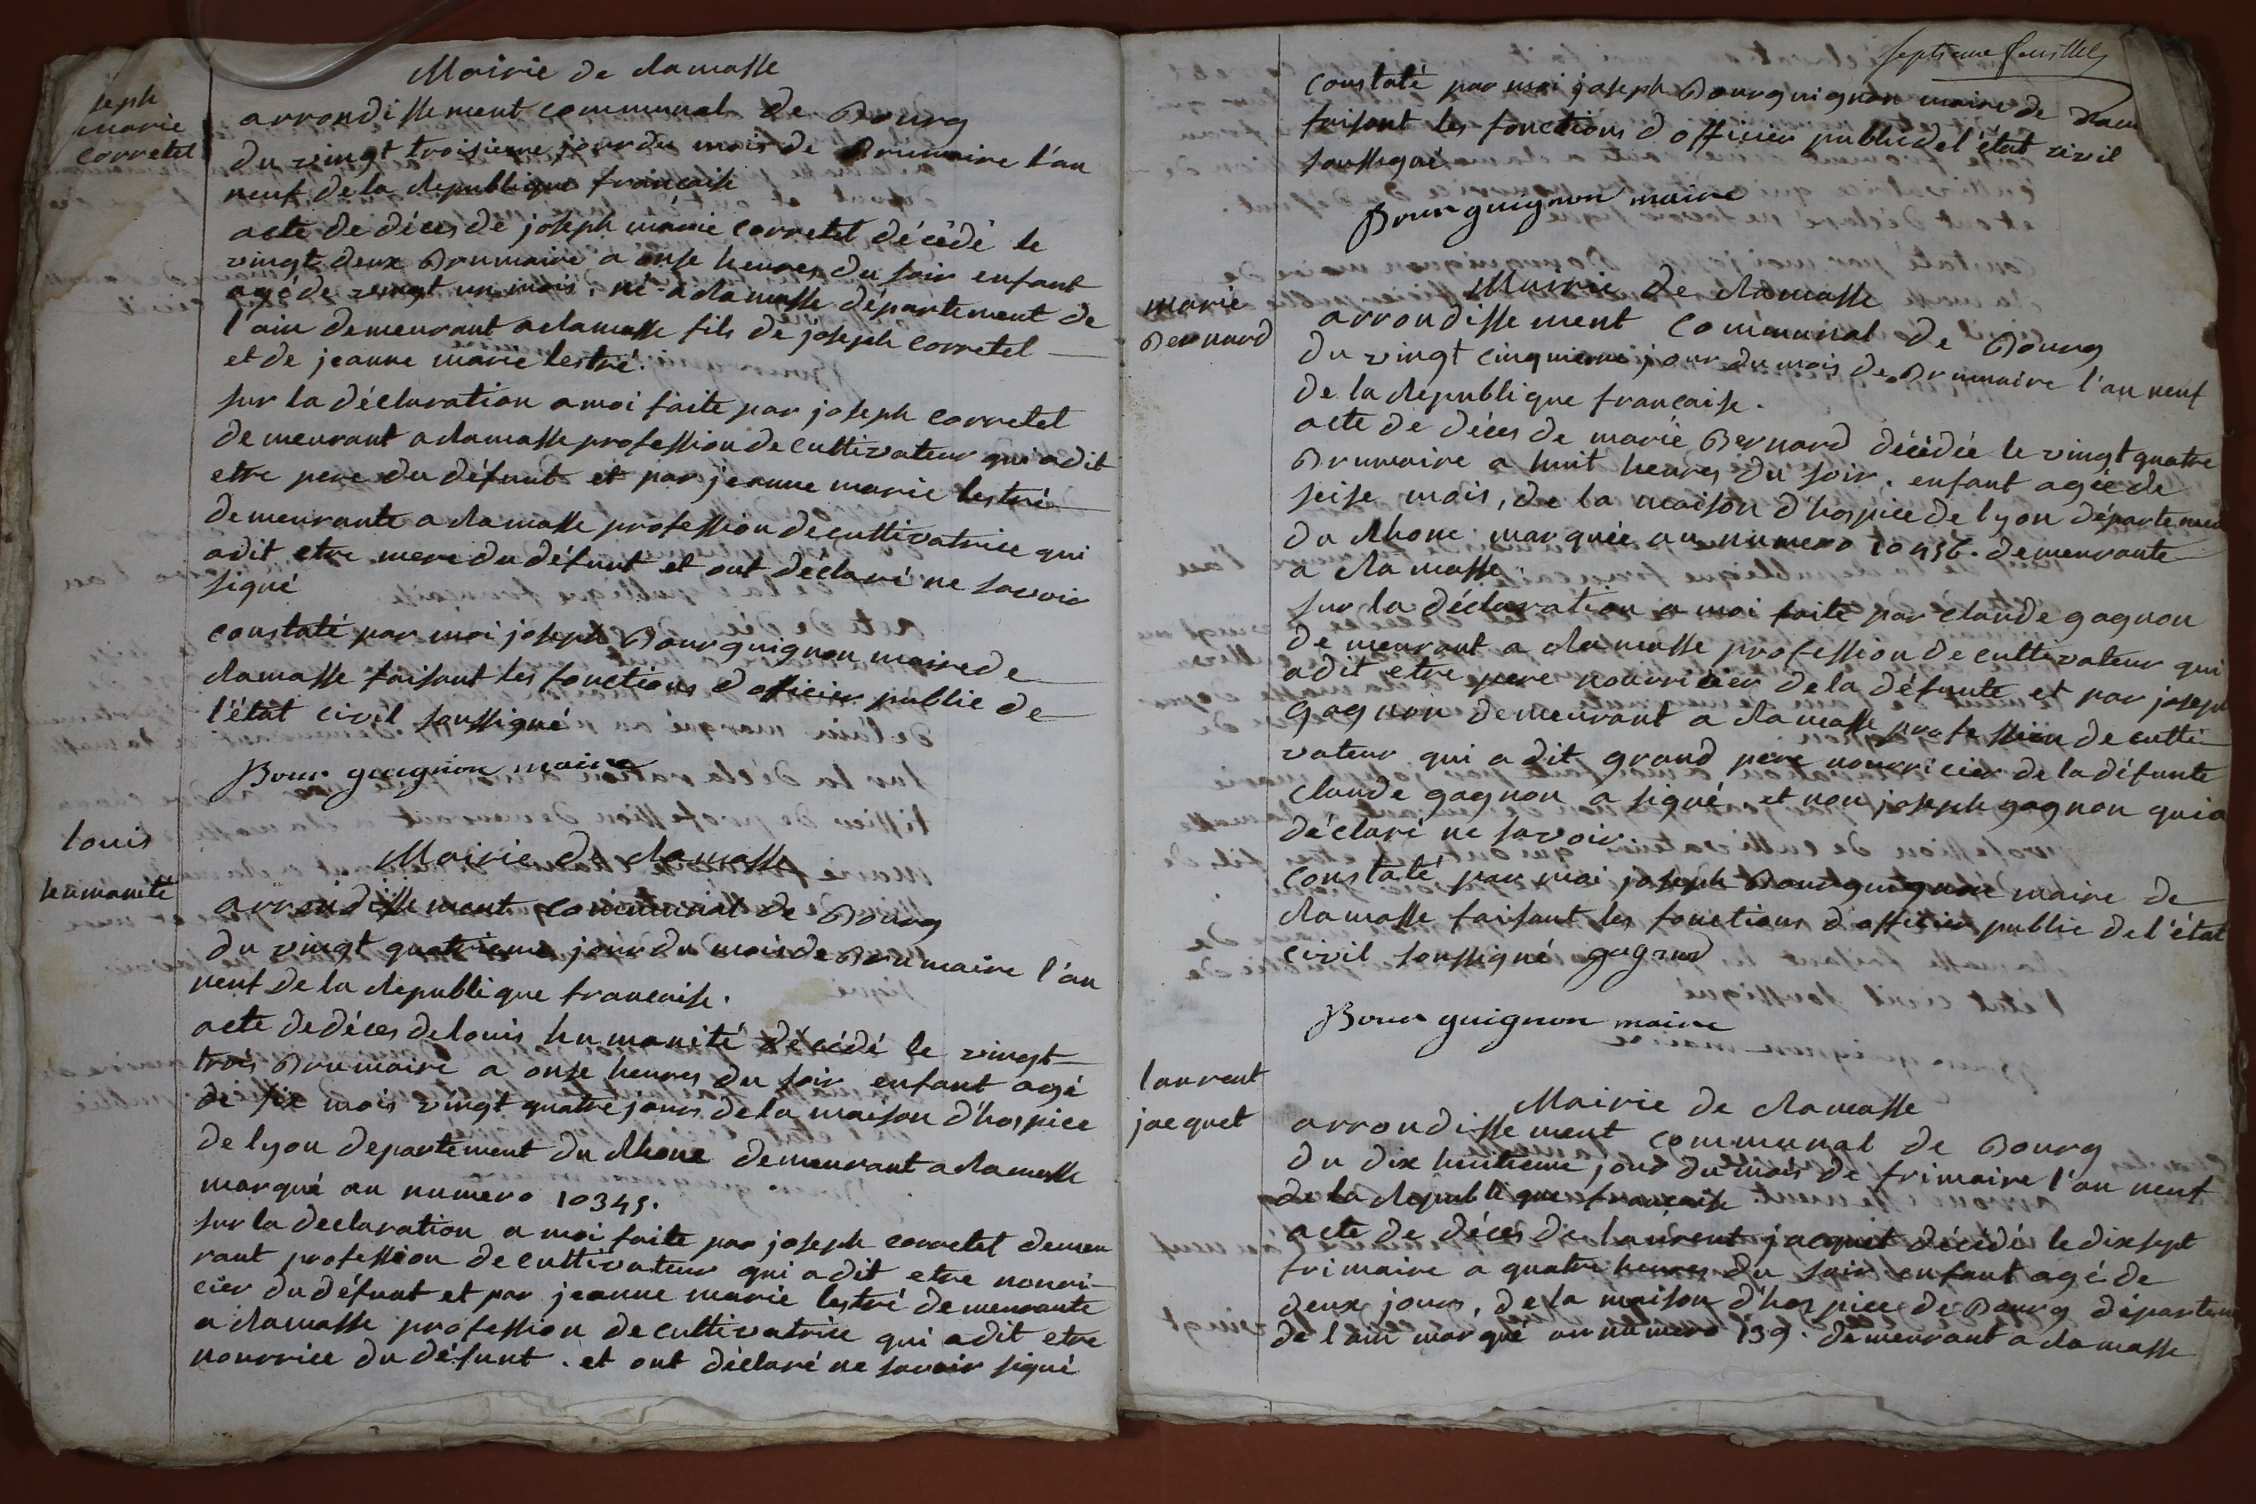 seph
marie
corretel
Mairie de Ramasse
arrondissement communal de Bourg
du vingt troisieme jour du mois de Brumaire l'an
neuf de la Republique française
acte de décès de joseph marie corretel décédé le
vingt deux Brumaire a onse heures du soir enfant
agé de vingt un mois, né a Ramasse département de
l'ain demeurant a Ramasse fils de joseph corretel
et de jeanne marie lestré.
sur la déclaration a moi faite par joseph corretel
demeurant a Ramasse profession de cultivateur qui a dit
etre pere du défunt et par jeanne marie lestré
demeurante a Ramasse profession de cultivatrice qui
a dit etre mere du défunt et ont déclaré ne savoir
signé
constaté par moi joseph Bourguignon maire de
Ramasse faisant les fonctions d officier public de
l'état civil soussigné
Bourguignon maire
louis
humanité
Mairie de Ramasse
arrondissement communal de Bourg
du vingt quatrieme jour du mois de Brumaire l'an
neuf de la Republique francaise.
acte de décès de louis humanité décédé le vingt
trois Brumaire a onse heures du soir enfant agé
de six mois vingt quatre jours de la maison d'hospice
de lyon departement du Rhone demeurant a Ramasse
marqué au numero 10345.
sur la declaration a moi faite par joseph corretel demeu
rant profession de cultivateur qui a dit etre nourri-
cier du défunt et par jeanne marie lestré demeurante
a Ramasse profession de cultivatrice qui a dit etre
nourrice du défunt. et ont déclaré ne savoir signé
septieme feuillet
constaté par moi joseph Bourguignon maire de Ram
faisant les fonctions d officier public de l'état civil
soussigné
Bourguignon maire
marie
Bernard
Mairie de Ramasse
arrondissement communal de Bourg
du vingt cinquieme jour du mois de Brumaire l'an neuf
de la Republique francaise.
acte de décès de marie Bernard décédée le vingt quatre
Brumaire a huit heures du soir. enfant agée de
seise mois, de la maison d'hospice de lyon départemen
du Rhone marquée au numero 10456. demeurante
a Ramasse.
sur la déclaration a moi faite par claude gagnon
demeurant a Ramasse profession de cultivateur qui
a dit etre pere nourricier de la défunte et par joseph
gagnon demeurant a Ramasse profession de culti-
vateur qui a dit grand pere nourricier de la défunte
claude gagnon a signé et non joseph gagnon qui a
déclaré ne savoir.
constaté par moi joseph Bourguignon maire de
Ramasse faisant les fonctions d officier public de l'état
civil soussigné gagnon
Bourguignon maire
laurent
jacquet
Mairie de Ramasse
arrondissement communal de Bourg
du dix huitieme jour du mois de frimaire l'an neuf
de la Republique francaise
acte de décès de laurent jacquet décédé le dix sept
frimaire a quatre heures du soir enfant agé de
deux jours, de la maison d'hospice de Bourg départem
de l'ain marqué au numero 139. demeurant a Ramasse